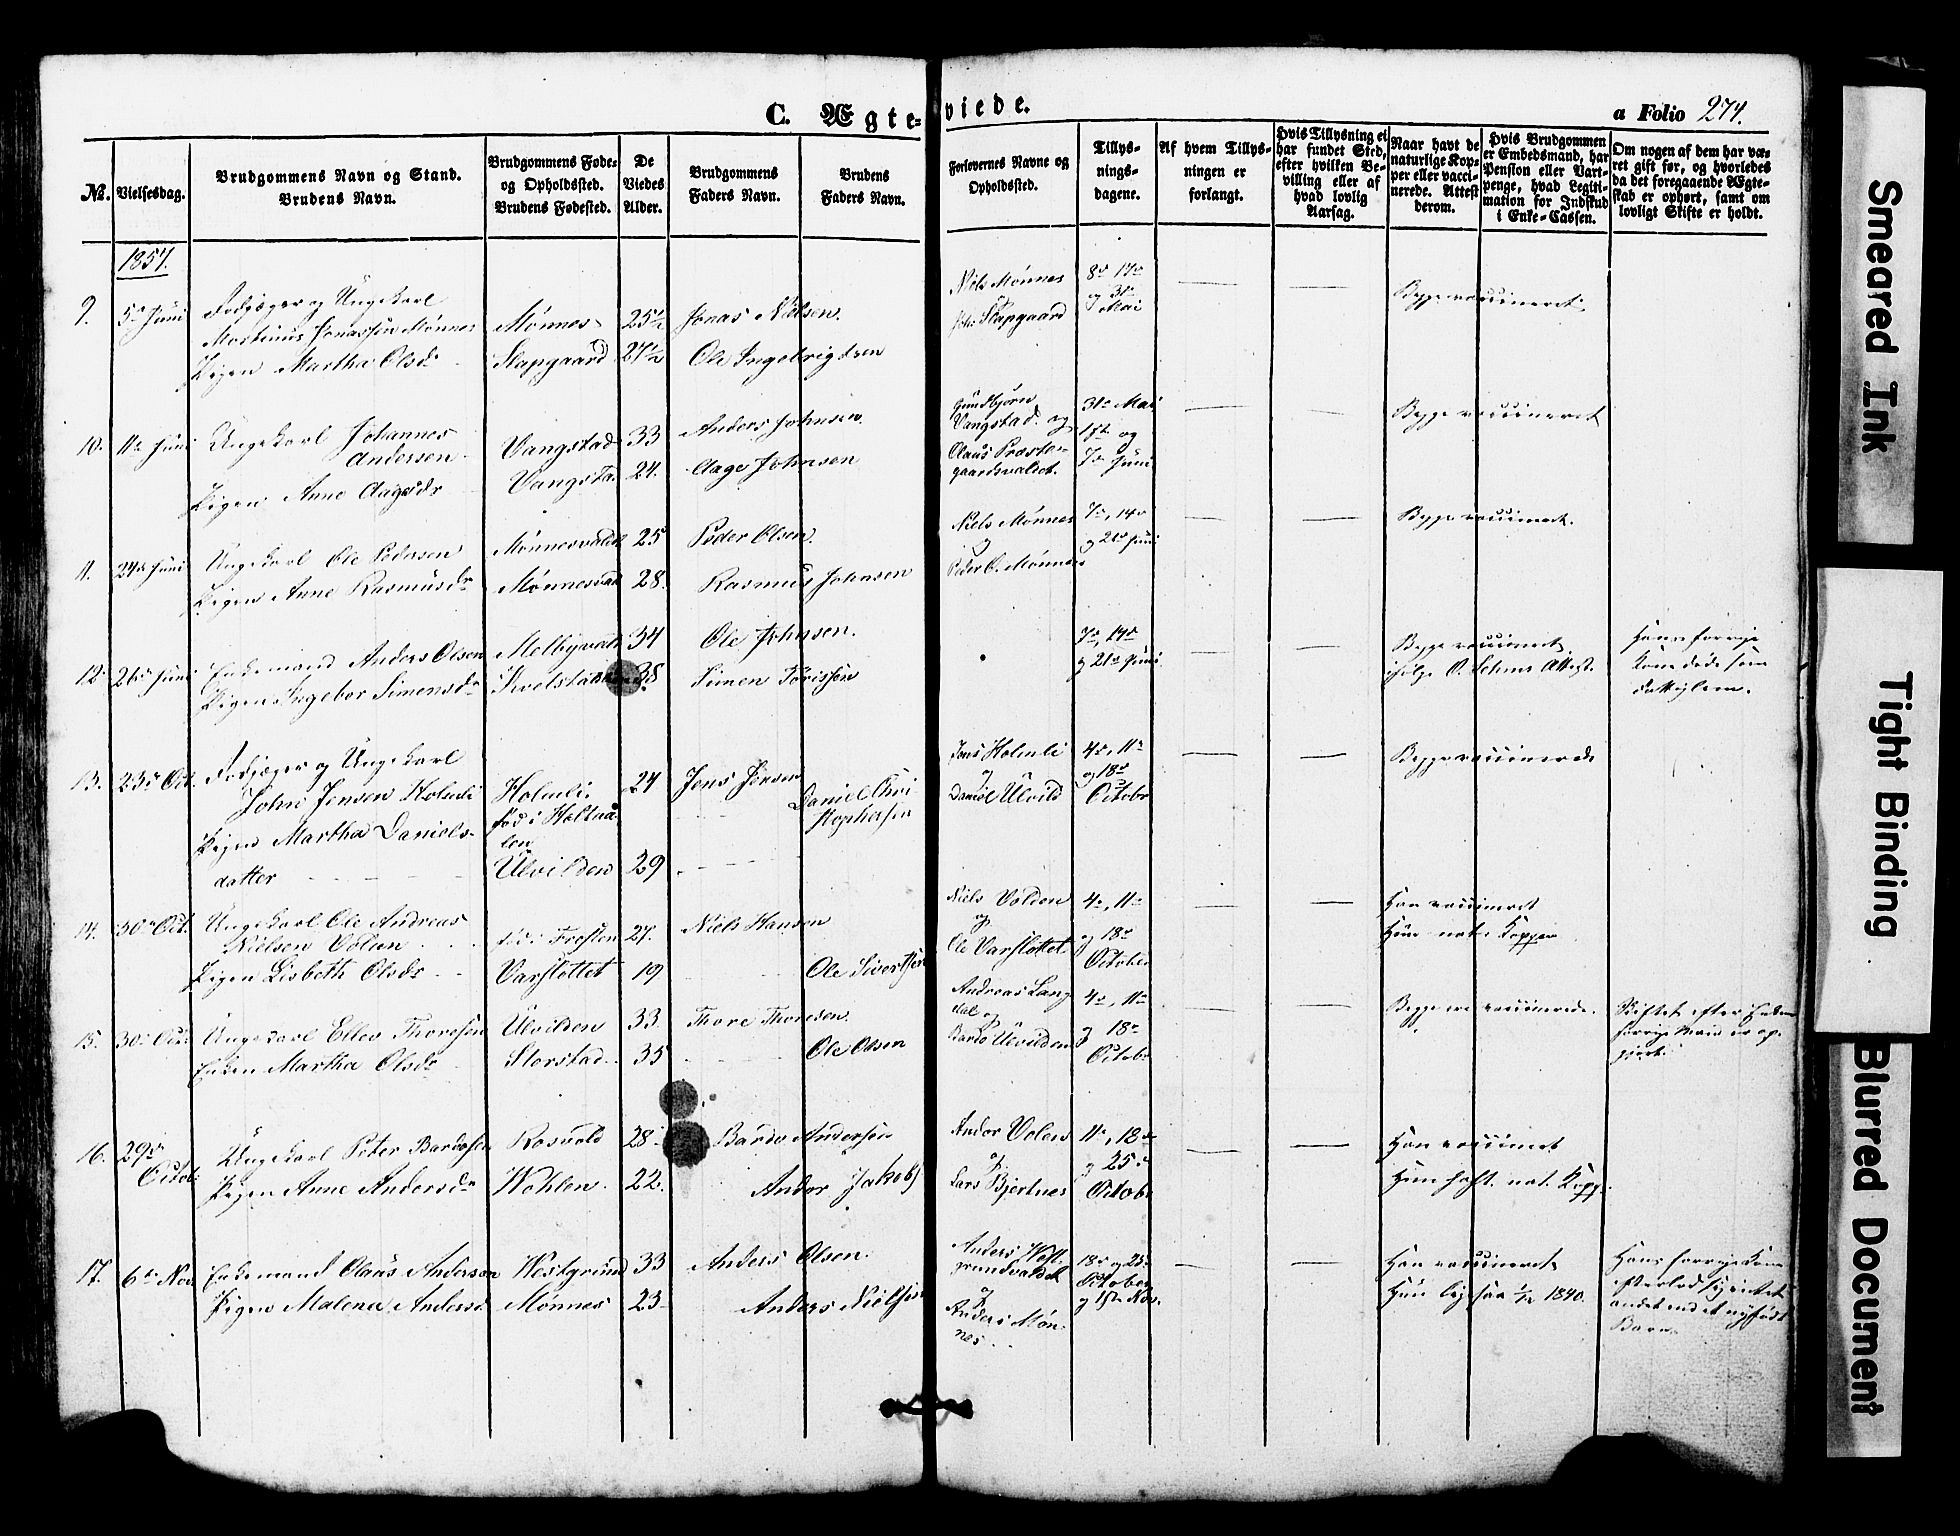 C. Ægte=
viede.
a Folio 274.
№.
Vielsesdag.
Brudgommens Navn og Stand.
Brudens Navn.
Brudgommens Føde=
og Opholdssted.
Brudens Fødested.
De
Viedes
Alder.
Brudgommens
Faders Navn.
Brudens
Faders Navn.
Forlovernes Navne og
Opholdssted.
Tillys-
nings-
dagene.
Af hvem Tillys-
ningen er
forlangt.
Hvis Tillysning ei
har fundet Sted,
efter hvilken Be-
villing eller af
hvad lovlig
Aarsag.
Naar havt de
naturlige Kop-
per eller vacci-
nerede. Attest
derom.
Hvis Brudgommen
er Embedsmand, har
Pension eller Vart-
penge, hvad Legiti-
mation for Indskud
i Enke=Cassen.
Om nogen af dem har væ-
ret gift før, og hvorledes
da det foregaaende Ægte-
stad er ophørt, samt om
lovligt Skifte er holdt.
1857.
9. 5te Juni
Fodjæger og Ungekarl
Martinus Jonassen Mønnes
Pigen Martha Olsdr
Mønnes
Slapgaard
25½
27½
Jonas Nielsen.
Ole Ingebrigdsen
Niels Mønnes
Slapgaard
8de 17de
og 31te
Mai
Begge vaccineret.
10. 11te Juni
Ungekarl Johannes
Andersen
Pigen Anne Aagesdr
Vangstad 33
Vangstad 24.
Anders Johnsen.
Aage Johnsen
Gundbjørn
Vangstad og
Claus Præste-
gaardsvaldet.
31te Mai
1ste og
7de Juni
Begge vaccineret
11. 24de Juni
Ungekarl Ole Pedersen
Pigen Anne Rasmusdr
Mønnesvaldet 25
Mønnesvald 28.
Peder Olsen.
Rasmus Johnsen
Niels Mønnes
og
Peder O. Mønnes
7de, 14de
og 21de Juni
Begge vaccineret.
12. 26de Juni
Enkemand Anders Olsen
Pigen Ingebor Simensdr
Melbyvald 34
38.
Ole Johnsen.
Simen Torissen
7de, 14de
og 21de Juni
Begge vaccineret
ifølge O. Lehns Attest.
Hans forrige
Kone døde som
13. 23de Oct.
Fodjæger og Ungekarl
John Jensen Holmli
Pigen Martha Daniels-
datter
Holmli.
fød i Holtaa-
len
Ulvilden
24
29
Jens Jensen
Daniel Chri
stophersen
Jens Holmli
og
Daniel Ulvild
4de, 11te
og 18de
Octobr
Begge vaccinerede
14. 30te Oct.
Ungekarl Ole Andreas
Nielsen Volden
Pigen Lisbeth Olsdr
fød i Frosten 27.
Varslottet 19
Niels Hansen
Ole Sivertsen
Niels Volden
og
Ole Varslottet
4de, 11te
og 18de
October
Han vaccineret
Hun nat. Kopper
15. 30te Oct.
Ungekarl Ellev Thoresen
Enken Martha Olsdr
Ulvilden 33.
Storstad. 35
Thore Thoresen.
Ole Olsen
Andreas Lang-
dal og
Bardo Ulvilden
4de, 11te
og 18de
Octobr
Begge ere vaccinerede.
Skiftet efter Enkens
forrige Mand er op-
gjort.
16. 29de
Octob.
Ungekarl Peter Bardosen
Pigen Anne Andersdr
Rosvold 28
Wohlen. 22.
Bardo Andersen
Andor Jakobs
Andor Volen
og
Lars Bjertnes
11te, 18de
og 25de
Octobr
Han vaccineret
Hun haft nat. Kopp.
17. 6te Nov.
Enkemand Claus Andersen
Pigen Malena Anders
Westgrund 33
Mønnes 23
Anders Olsen.
Anders Nielsen
Anders West
grundvaldet
og
Anders Møn-
nes.
18de og 25de
October
og 1ste Nov.
Han vaccineret
Hun ligesaa ½ 1840.
Hans forrige Kone
efterlod sig intet
andet end et nyfødt
Barn.
Smeared Ink
Tight Binding
Blurred Document